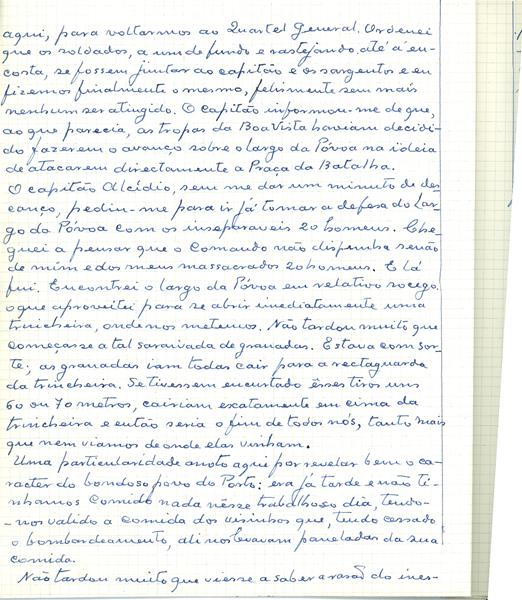 aqui, para voltarmos ao Quartel General. Ordenei
que os soldados, a um de fundo e rastejando até á en-
costa, se fossem juntar ao capitão e os sargentos e eu
fizemos finalmente o mesmo, felismente sem mais
nenhum ser atingido. O capitão informou-me de que,
ao que parecia, as tropas da Boa Vista haviam decidi-
do fazerem o avanço sobre o largo da Póvoa na ideia
de atacarem directamente a Praça da Batalha.
O capitão Alcídio, sem me dar um minuto de des
canço, pediu-me para ir já tomar a defesa do Lar-
go da Póvoa com os inseparaveis 20 homens. Che
guei a pensar que o Comando não dispunha senão
de mim e dos meus massacrados 20 homens. E lá
fui. Encontrei o largo da Póvoa em relativo socego.
o que aproveitei para se abrir imediatamente uma
trincheira, onde nos metemos. Não tardou muito que
começasse a tal saraivada de granadas. Estava com sor-
te; as granadas iam todas cair para a rectaguarda
da trincheira. Se tivessem encurtado êsses tiros uns
60 ou 70 metros, cairiam exatamente em cima da
trincheira e então seria o fim de todos nós, tanto mais
que nem viamos de onde elas vinham.
Uma particularidade anoto aqui por revelar bem o ca-
racter do bondoso povo do Porto: era já tarde e não ti-
nhamos comido nada nêsse trabalhoso dia, tendo-
-nos valido a comida dos visinhos que, tendo cessado
o bombardeamento, ali nos levavam paneladas da sua
comida.
Não tardou muito que viesse a saber a rasão do ines-